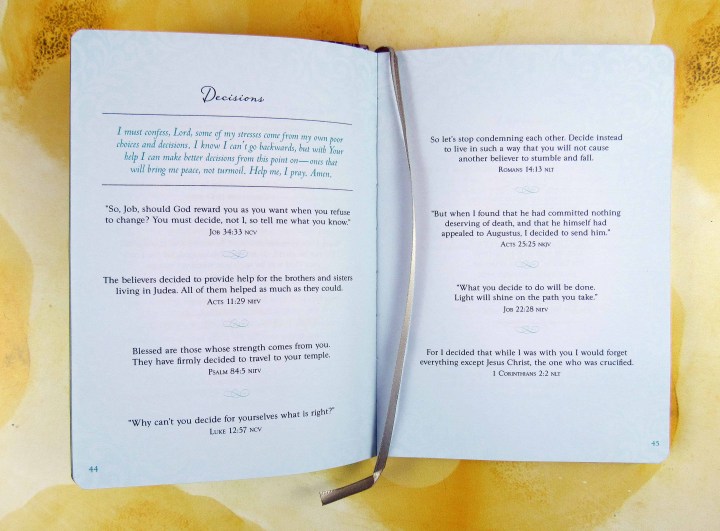 Decisions
I must confess, Lord, some of my stresses come from my own poor
choices and decisions. I know I can't go backwards, but with Your
help I can make better decisions from this point on—ones that
will bring me peace, not turmoil. Help me, I pray. Amen.
"So, Job, should God reward you as you want when you refuse
to change? You must decide, not I, so tell me what you know."
Job 34:33 NCV
The believers decided to provide help for the brothers and sisters
living in Judea. All of them helped as much as they could.
Acts 11:29 NIrV
Blessed are those whose strength comes from you.
They have firmly decided to travel to your temple.
Psalm 84:5 NIrV
"Why can't you decide for yourselves what is right?"
Luke 12:57 NCV
44
So let's stop condemning each other. Decide instead
to live in such a way that you will not cause
another believer to stumble and fall.
Romans 14:13 NLT
"But when I found that he had committed nothing
deserving of death, and that he himself had
appealed to Augustus, I decided to send him."
Acts 25:25 NKJV
"What you decide to do will be done.
Light will shine on the path you take."
Job 22:28 NIrV
For I decided that while I was with you I would forget
everything except Jesus Christ, the one who was crucified.
1 Corinthians 2:2 NLT
45